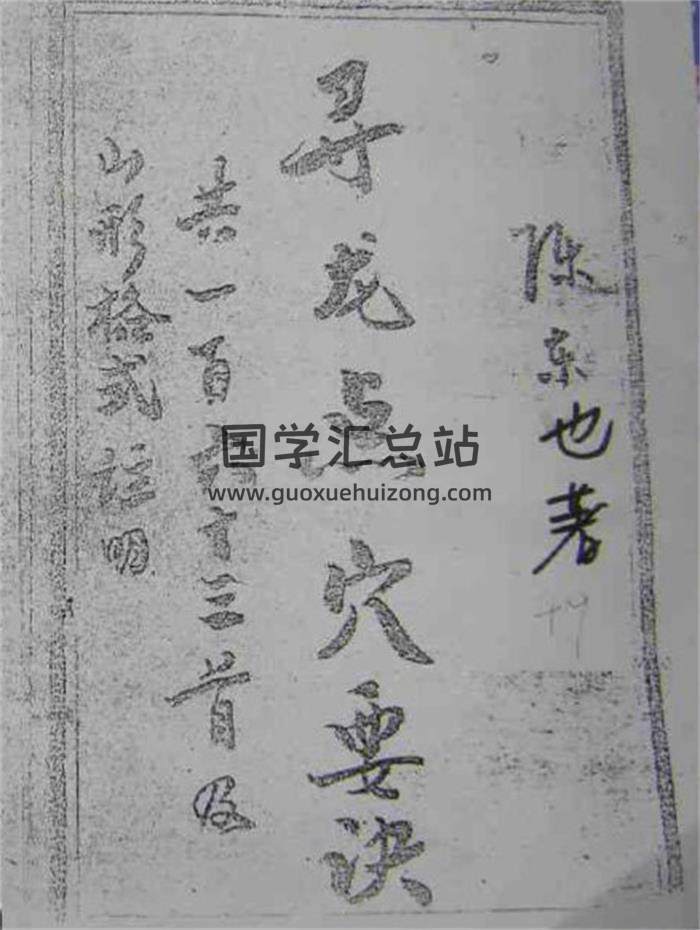 陈东也著
寻龙点穴要诀
共一百十三首及
山形格式註明
国学汇总站
www.guoxuehuizong.com